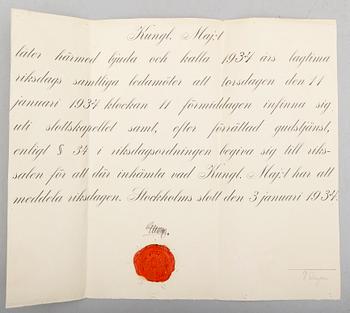 Kungl. Maj:t
låter härmed bjuda och kalla 1934 års lagtima
riksdags samtliga ledamöter att torsdagen den 11
januari 1934 klockan 11 förmiddagen infinna sig
uti slottskapellet samt, efter förrättad gudstjänst,
enligt § 34 i riksdagsordningen begiva sig till riks-
salen för att där inhämta vad Kungl. Maj:t har att
meddela riksdagen. Stockholms slott den 3 januari 1934.